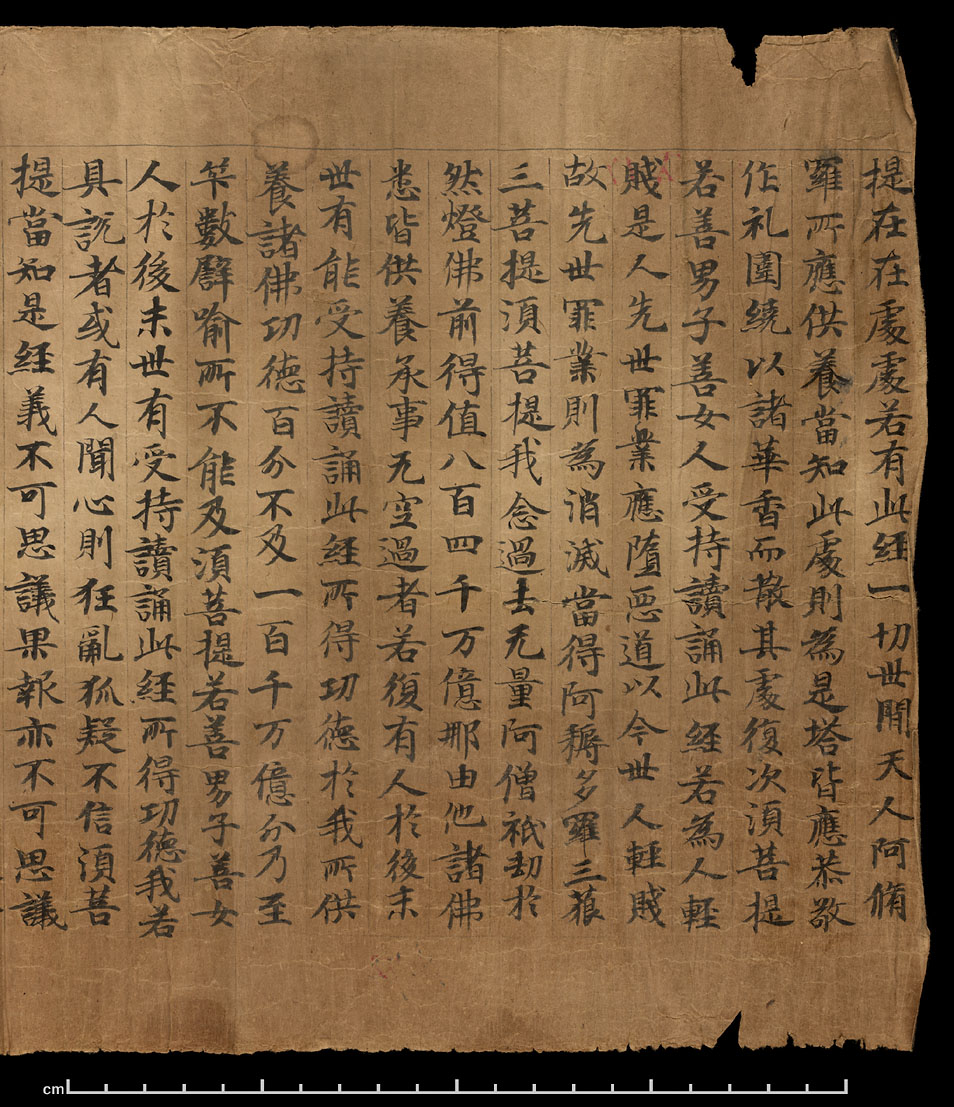 提在在處處若有此経一切世閒天人阿脩
羅所應供養當知此處則為是塔皆應恭敬
作礼圍繞以諸華香而散其處復次湏菩提
若善男子善女人受持讀誦此経若為人輕
賎是人先世罪業應墮惡道以今世人輕賎
故先世罪業則為消滅當得阿耨多羅三藐
三菩提湏菩提我念過去无量阿僧祇劫於
然燈佛前得值八百四千万億那由他諸佛
悉皆供養承事无空過者若復有人於後末
世有能受持讀誦此経所得功德於我所供
養諸佛功德百分不及一百千万億分乃至
筭數譬喻所不能及湏菩提若善男子善女
人於後末世有受持讀誦此経所得功德我若
具說者或有人聞心則狂亂狐疑不信湏菩
提當知是経義不可思議果報亦不可思議
cm